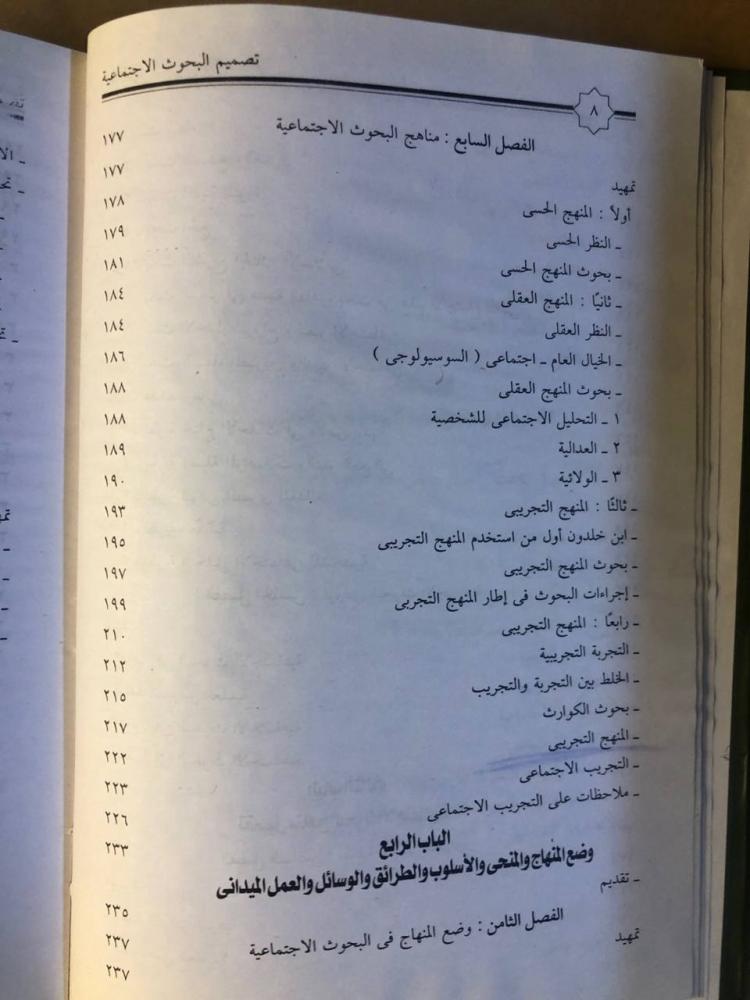 تصميم البحوث الاجتماعية
٨
الفصل السابع : مناهج البحوث الاجتماعية ١٧٧
تمهيد ١٧٧
أولاً : المنهج الحسى ١٧٨
ـ النظر الحسى ١٧٩
ـ بحوث المنهج الحسى ١٨١
ـ ثانيًا : المنهج العقلى ١٨٤
ـ النظر العقلى ١٨٤
ـ الخيال العام ـ اجتماعى ( السوسيولوجى ) ١٨٦
ـ بحوث المنهج العقلى ١٨٨
١ ـ التحليل الاجتماعى للشخصية ١٨٨
٢ ـ العدالية ١٨٩
٣ ـ الولائية ١٩٠
ـ ثالثًا : المنهج التجريبى ١٩٣
ـ ابن خلدون أول من استخدم المنهج التجريبى ١٩٥
ـ بحوث المنهج التجريبى ١٩٧
ـ إجراءات البحوث فى إطار المنهج التجربى ١٩٩
ـ رابعًا : المنهج التجريبى ٢١٠
ـ التجربة التجريبية ٢١٢
ـ الخلط بين التجربة والتجريب ٢١٥
ـ بحوث الكوارث ٢١٧
ـ المنهج التجريبى ٢٢٢
ـ التجريب الاجتماعى ٢٢٣
ـ ملاحظات على التجريب الاجتماعى ٢٢٦
الباب الرابع
وضع المنهاج والمنحى والأسلوب والطرائق والوسائل والعمل الميدانى ٢٣٣
ـ تقديم ٢٣٥
الفصل الثامن : وضع المنهاج فى البحوث الاجتماعية ٢٣٧
تمهيد ٢٣٧